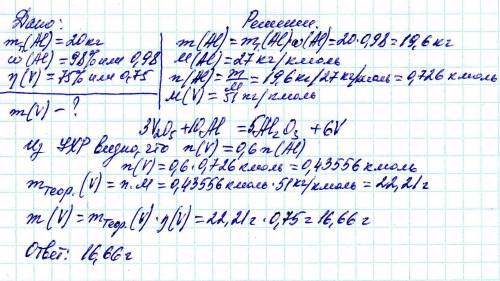 Дано:
m₁(Al)=20кг
ω(Al)=98% или 0,98
η(V)=75% или 0,75
m(V)-?
Решение.
m(Al)=m₁(Al)ω(Al)=20·0,98=19,6кг
M(Al)=27кг/кмоль
n(Al)=m/M=19,6кг/27кг/кмоль=0,726кмоль
M(V)=51кг/кмоль
3V₂O₅+10Al=5Al₂O₃+6V
Из УХР видно, что n(V)=0,6n(Al)
n(V)=0,6·0,726кмоль=0,43556кмоль
mтеор.(V)=n·M=0,43556кмоль·51кг/кмоль=22,21г
m(V)=mтеор.(V)·η(V)=22,21г·0,75=16,66г
Ответ: 16,66г